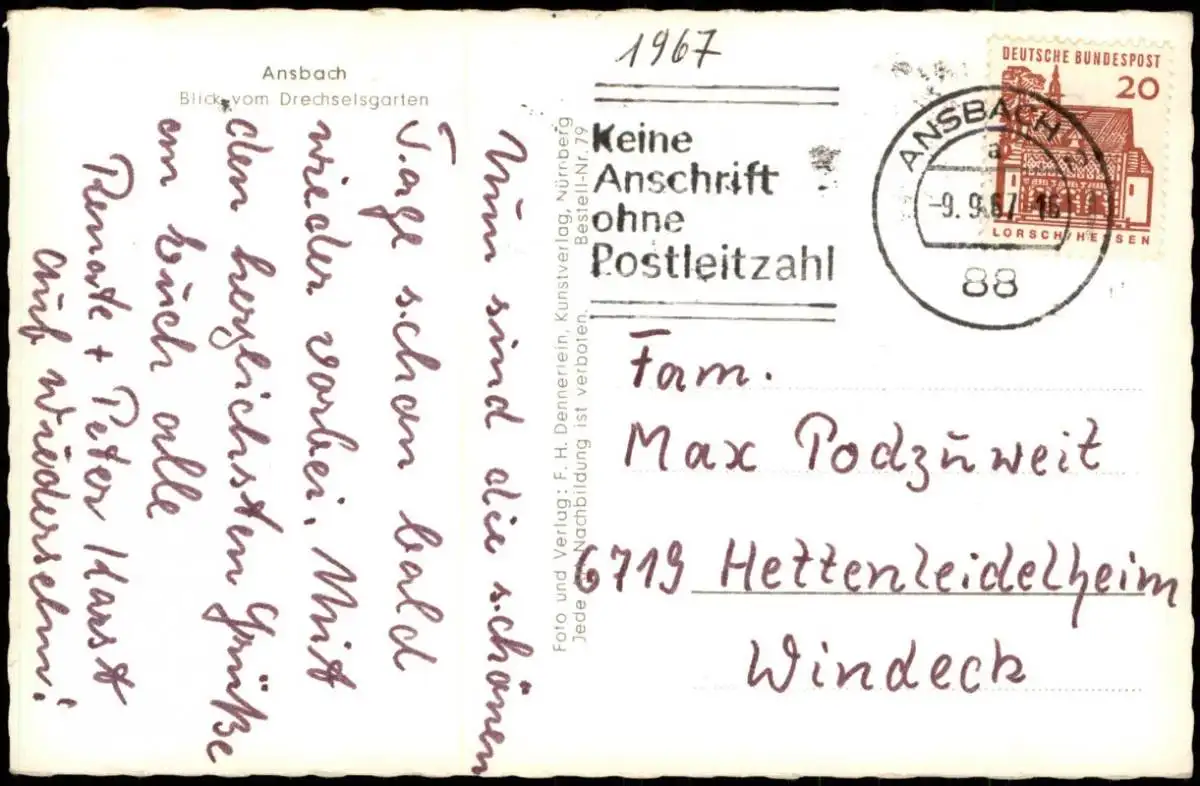 Ansbach
Blick vom Drechselsgarten
Nun sind die schönen
Tage schon bald
wieder vorbei. Mit
den herzlichsten Grüße
an Euch alle
Renate + Peter Karst
auf Wiedersehn!
Foto und Verlag: F. H. Dennerlein, Kunstverlag, Nürnberg
Jede Nachbildung ist verboten. Bestell-Nr. 79
1967
Keine
Anschrift
ohne
Postleitzahl
ANSBACH 2
a
-9. 9.67-16
88
DEUTSCHE BUNDESPOST
20
LORSCH/HESSEN
Fam.
Max Podzuweit
6719 Hettenleidelheim
Windeck